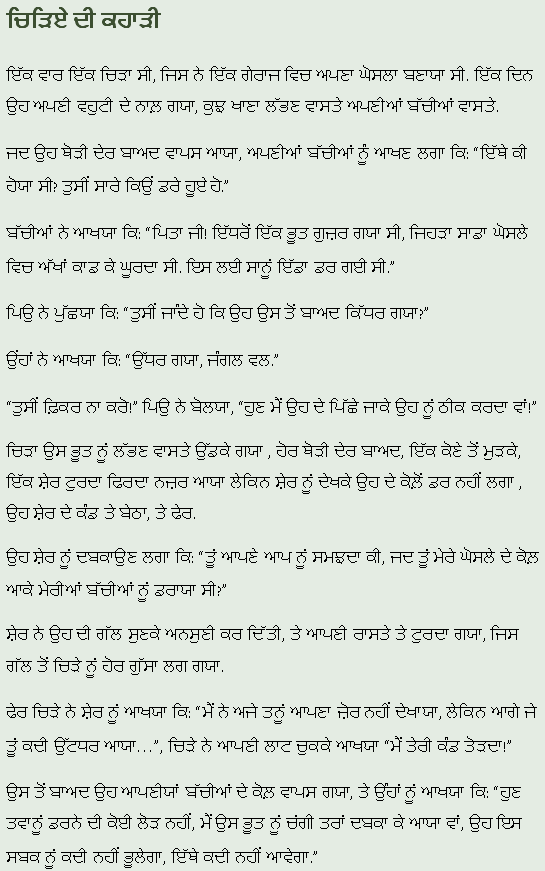 ਚਿੜਿਏ ਦੀ ਕਹਾੜੀ
ਇੱਕ ਵਾਰ ਇੱਕ ਚਿੜਾ ਸੀ, ਜਿਸ ਨੇ ਇੱਕ ਗੇਰਾਜ ਵਿਚ ਅਪਣਾ ਘੋਸਲਾ ਬਣਾਯਾ ਸੀ. ਇੱਕ ਦਿਨ
ਉਹ ਅਪਣੀ ਵਹੁਟੀ ਦੇ ਨਾਲ਼ ਗਯਾ, ਕੁਝ ਖਾਣਾ ਲੱਭਣ ਵਾਸਤੇ ਅਪਣੀਆਂ ਬੱਚੀਆਂ ਵਾਸਤੇ.
ਜਦ ਉਹ ਥੋੜੀ ਦੇਰ ਬਾਅਦ ਵਾਪਸ ਆਯਾ, ਅਪਣੀਆਂ ਬੱਚੀਆਂ ਨੂੰ ਆਖਣ ਲਗਾ ਕਿ: “ਇੱਥੇ ਕੀ
ਹੋਯਾ ਸੀ? ਤੁਸੀਂ ਸਾਰੇ ਕਿਉਂ ਡਰੇ ਹੂਏ ਹੋ.”
ਬੱਚੀਆਂ ਨੇ ਆਖਯਾ ਕਿ: “ਪਿਤਾ ਜੀ! ਇੱਧਰੋਂ ਇੱਕ ਭੂਤ ਗੁਜ਼ਰ ਗਯਾ ਸੀ, ਜਿਹੜਾ ਸਾਡਾ ਘੋਸਲੇ
ਵਿਚ ਅੱਖਾਂ ਕਾਡ ਕੇ ਘੂਰਦਾ ਸੀ. ਇਸ ਲਈ ਸਾਨੂੰ ਇੱਡਾ ਡਰ ਗਈ ਸੀ.”
ਪਿਉ ਨੇ ਪੁੱਛਯਾ ਕਿ: “ਤੁਸੀਂ ਜਾਂਦੇ ਹੋ ਕਿ ਉਹ ਉਸ ਤੋਂ ਬਾਅਦ ਕਿੱਧਰ ਗਯਾ?”
ਉਂਹਾਂ ਨੇ ਆਖਯਾ ਕਿ: “ਉੱਧਰ ਗਯਾ, ਜੰਗਲ ਵਲ.”
“ਤੁਸੀਂ ਫ਼ਿਕਰ ਨਾ ਕਰੋ!” ਪਿਉ ਨੇ ਬੋਲਯਾ, “ਹੁਣ ਮੈਂ ਉਹ ਦੇ ਪਿੱਛੇ ਜਾਕੇ ਉਹ ਨੂੰ ਠੀਕ ਕਰਦਾ ਵਾਂ!”
ਚਿੜਾ ਉਸ ਭੂਤ ਨੂੰ ਲੱਭਣ ਵਾਸਤੇ ਉੱਡਕੇ ਗਯਾ , ਹੋਰ ਥੋੜੀ ਦੇਰ ਬਾਅਦ, ਇੱਕ ਕੋਣੇ ਤੋਂ ਮੁੜਕੇ,
ਇੱਕ ਸ਼ੇਰ ਟੁਰਦਾ ਫਿਰਦਾ ਨਜ਼ਰ ਆਯਾ ਲੇਕਿਨ ਸ਼ੇਰ ਨੂੰ ਦੇਖਕੇ ਉਹ ਦੇ ਕੋਲ਼ੋਂ ਡਰ ਨਹੀਂ ਲਗਾ ,
ਉਹ ਸ਼ੇਰ ਦੇ ਕੰਡ ਤੇ ਬੇਠਾ, ਤੇ ਫੇਰ.
ਉਹ ਸ਼ੇਰ ਨੂੰ ਦਬਕਾਉਣ ਲਗਾ ਕਿ: “ਤੂੰ ਆਪਣੇ ਆਪ ਨੂੰ ਸਮਝਦਾ ਕੀ, ਜਦ ਤੂੰ ਮੇਰੇ ਘੋਸਲੇ ਦੇ ਕੋਲ਼
ਆਕੇ ਮੇਰੀਆਂ ਬੱਚੀਆਂ ਨੂੰ ਡਰਾਯਾ ਸੀ?”
ਸ਼ੇਰ ਨੇ ਉਹ ਦੀ ਗੱਲ ਸੁਣਕੇ ਅਨਸੁਣੀ ਕਰ ਦਿੱਤੀ, ਤੇ ਆਪਣੀ ਰਾਸਤੇ ਤੇ ਟੁਰਦਾ ਗਯਾ, ਜਿਸ
ਗੱਲ ਤੋਂ ਚਿੜੇ ਨੂੰ ਹੋਰ ਗੁੱਸਾ ਲਗ ਗਯਾ.
ਫੇਰ ਚਿੜੇ ਨੇ ਸ਼ੇਰ ਨੂੰ ਆਖਯਾ ਕਿ: “ਮੈਂ ਨੇ ਅਜੇ ਤਨੂੰ ਆਪਣਾ ਜ਼ੋਰ ਨਹੀਂ ਦੇਖਾਯਾ, ਲੇਕਿਨ ਆਗੇ ਜੇ
ਤੂੰ ਕਦੀ ਉੱਟਧਰ ਆਯਾ…”, ਚਿੜੇ ਨੇ ਆਪਣੀ ਲਾਟ ਚੁਕਕੇ ਆਖਯਾ “ਮੈਂ ਤੇਰੀ ਕੰਡ ਤੋੜਦਾ!”
ਉਸ ਤੋਂ ਬਾਅਦ ਉਹ ਆਪਣੀਯਾਂ ਬੱਚੀਆਂ ਦੇ ਕੋਲ਼ ਵਾਪਸ ਗਯਾ, ਤੇ ਉੰਹਾਂ ਨੂੰ ਆਖਯਾ ਕਿ: “ਹੁਣ
ਤਵਾਨੂੰ ਡਰਨੇ ਦੀ ਕੋਈ ਲੋੜ ਨਹੀਂ, ਮੈਂ ਉਸ ਭੂਤ ਨੂੰ ਚੰਗੀ ਤਰਾਂ ਦਬਕਾ ਕੇ ਆਯਾ ਵਾਂ, ਉਹ ਇਸ
ਸਬਕ ਨੂੰ ਕਦੀ ਨਹੀਂ ਭੂਲੇਗਾ, ਇੱਥੇ ਕਦੀ ਨਹੀਂ ਆਵੇਗਾ.”